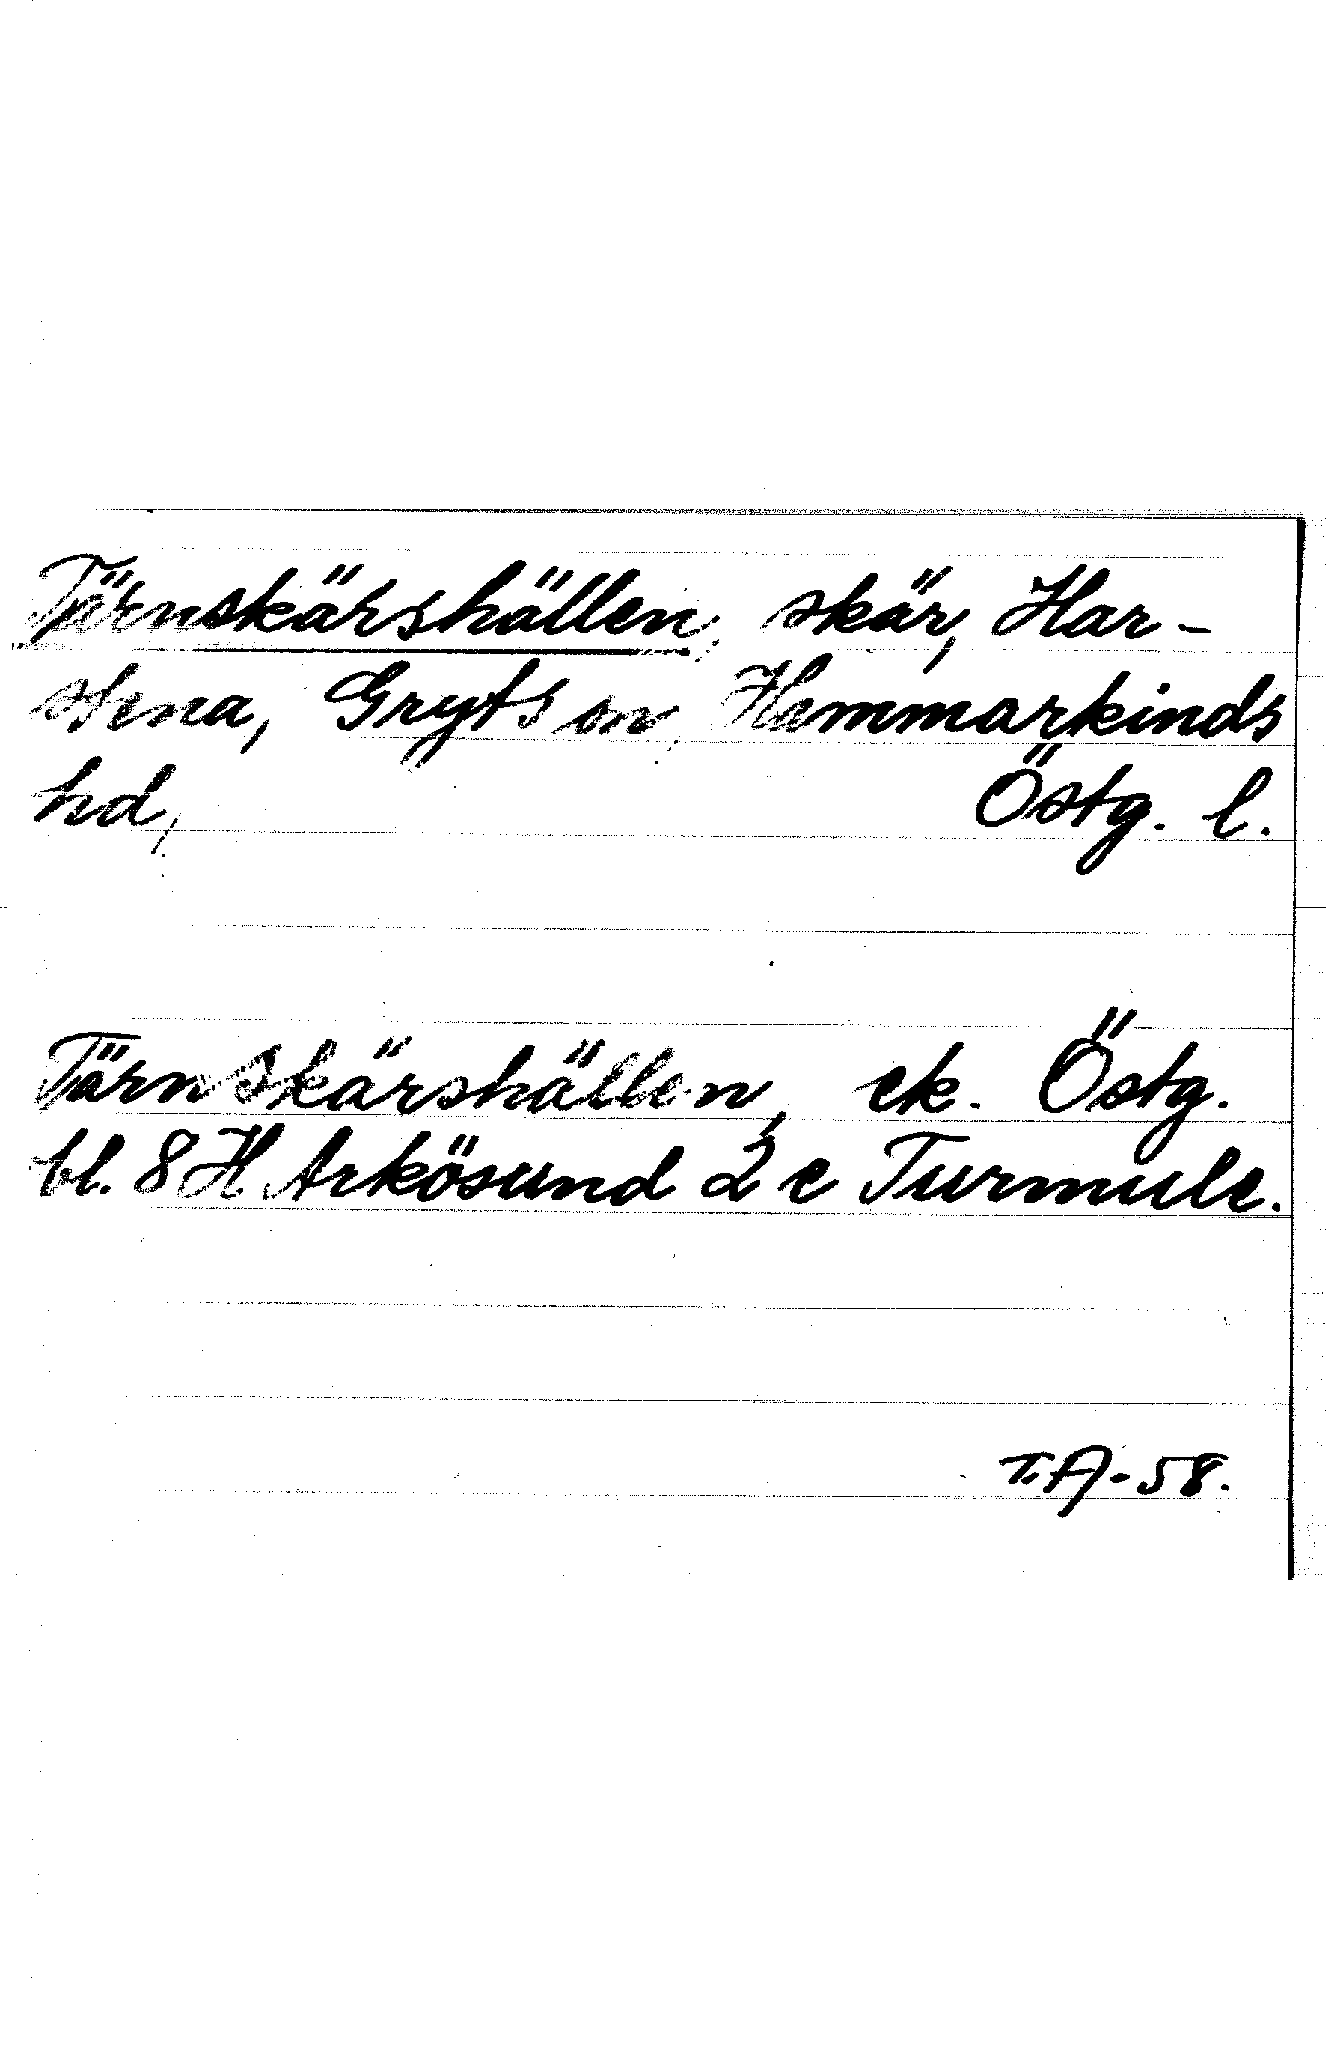 Tärnskärshällen, skär, Har-
stena, Gryts sn, Hammarkinds
hd, Östg. l.
Tärnskärshällen, ek. Östg.
bl. 8 H Arkösund 2 c Turmule.
T.A-58.